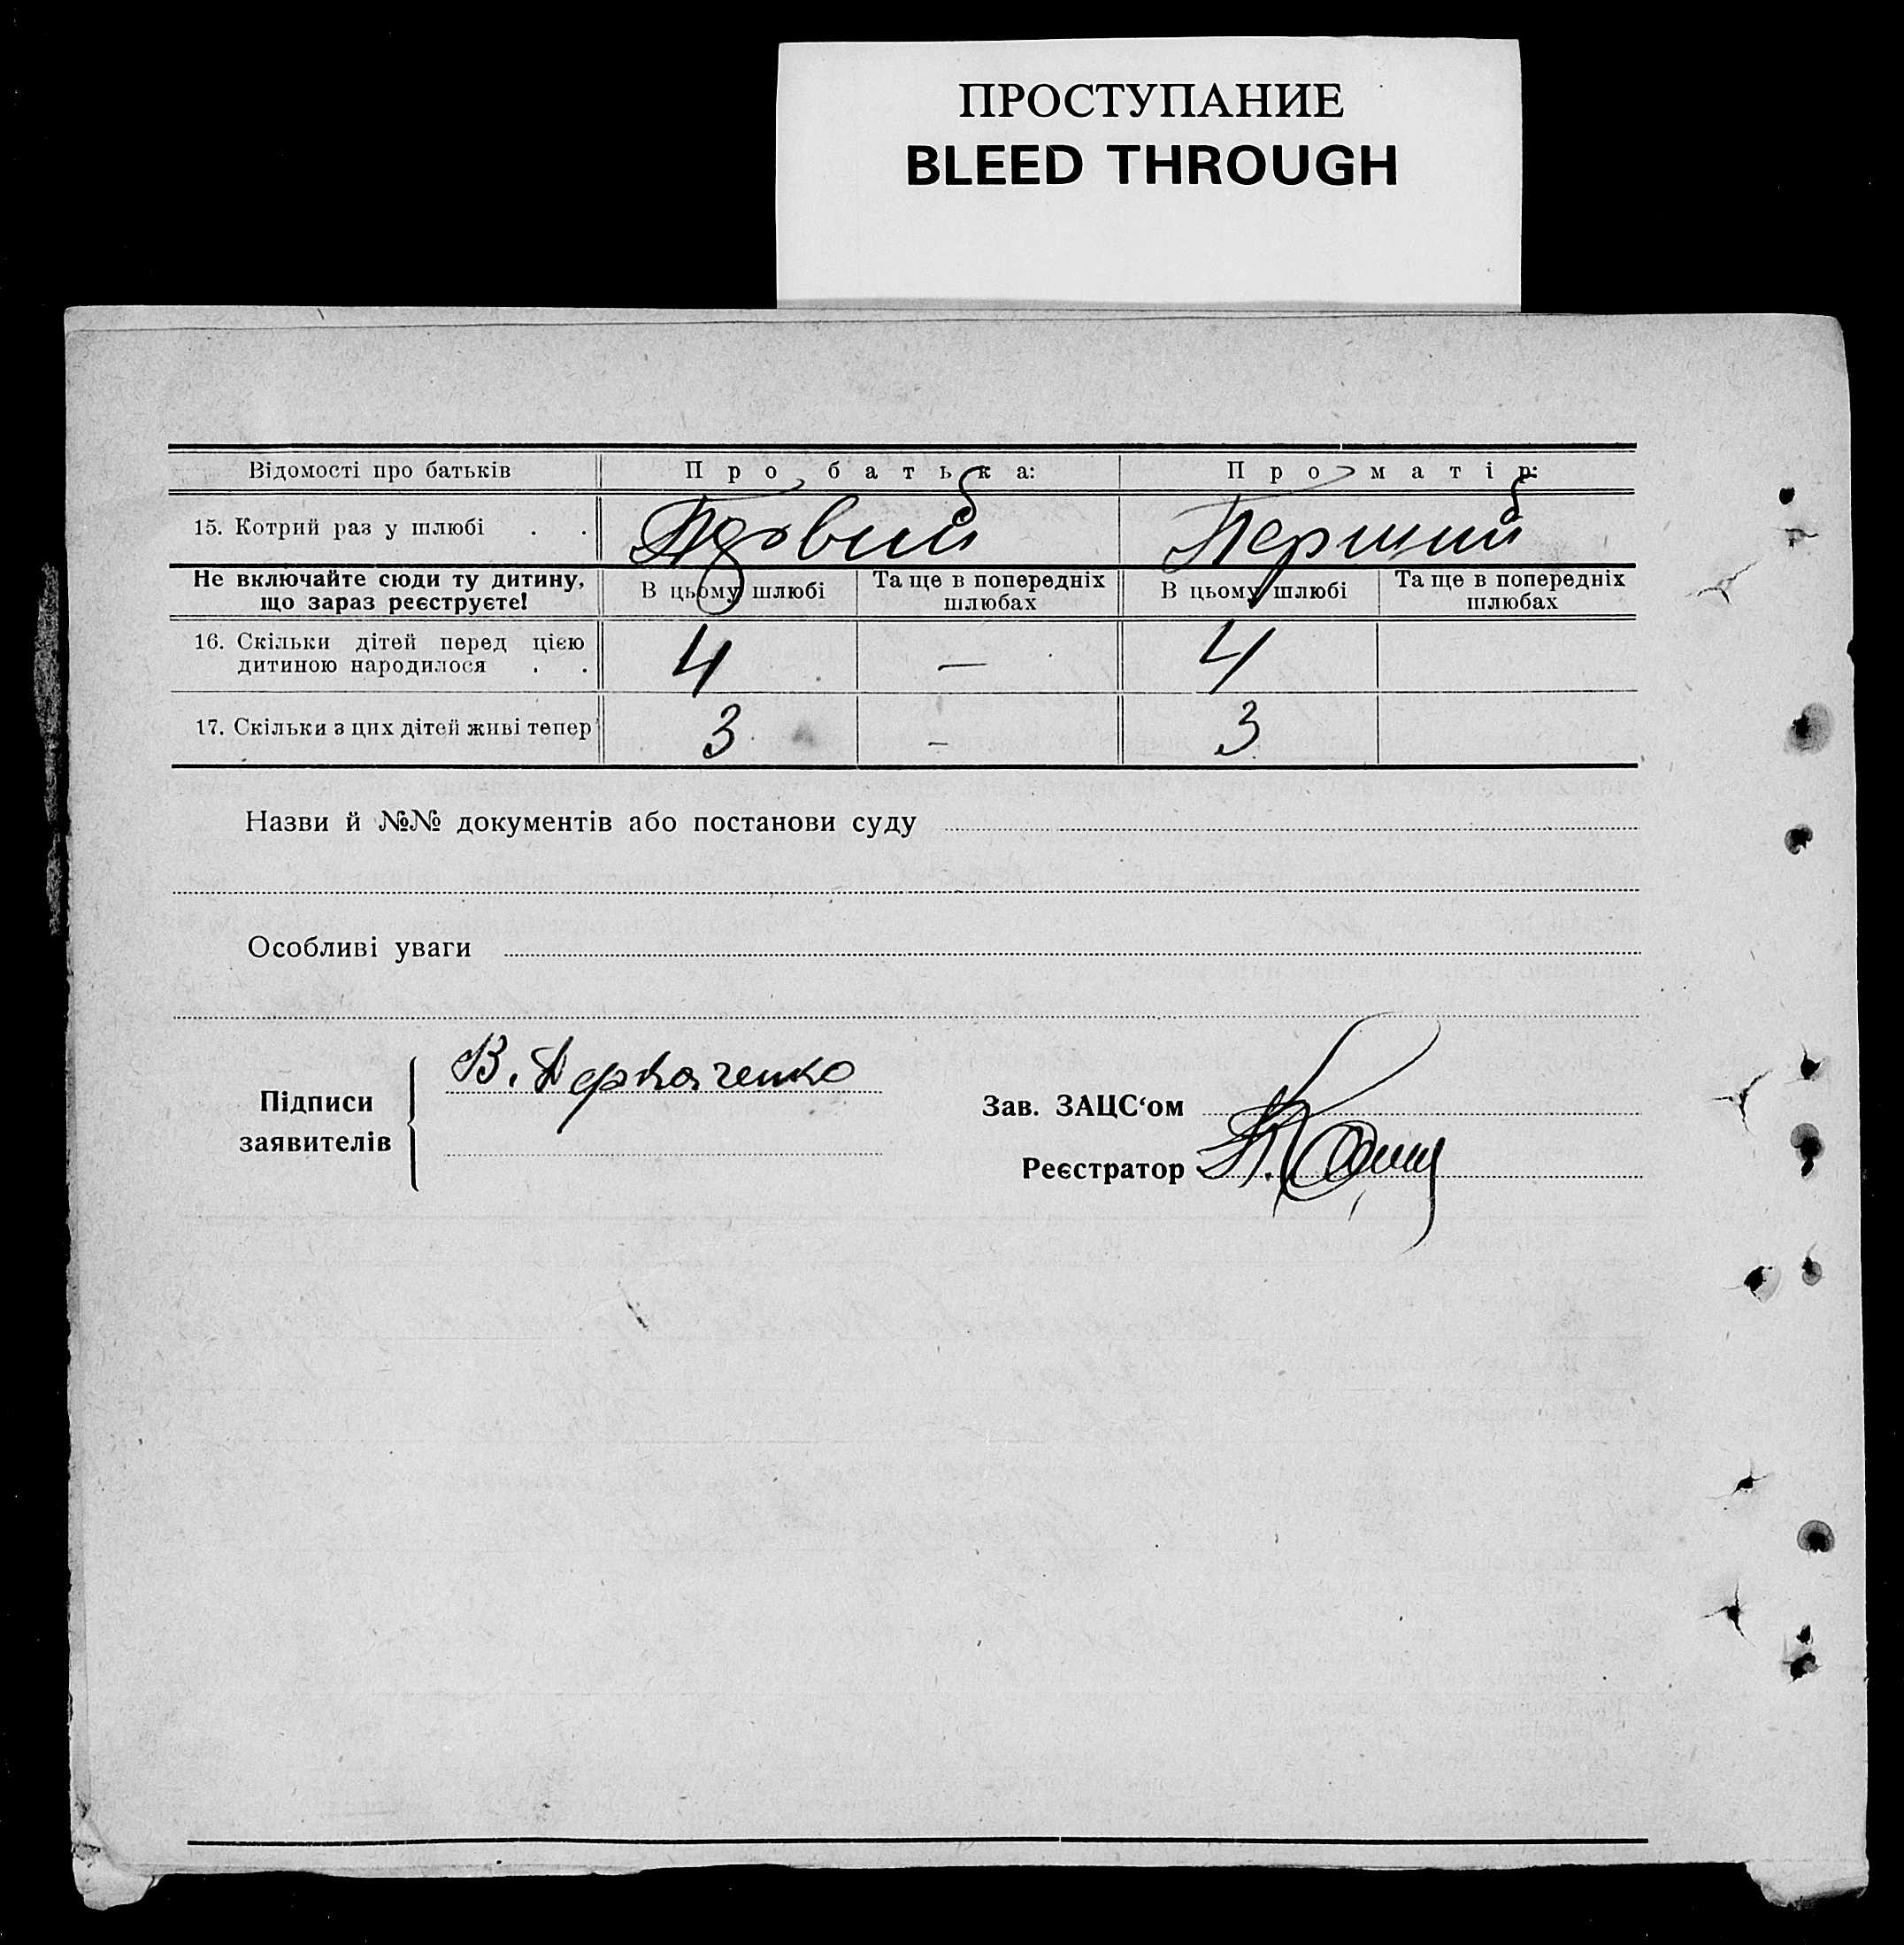 ПРОСТУПАНИЕ
BLEED THROUGH
Відомості про батьків Про батька: Про матір:
15. Котрий раз у шлюбі . . Первий Перший
Не включайте сюди ту дитину, що зараз реєструєте! В цьому шлюбі Та ще в попередніх шлюбах В цьому шлюбі Та ще в попередніх шлюбах
16. Скільки дітей перед цією дитиною народилося . . 4 — 4
17. Скільки з цих дітей живі тепер 3 - 3
Назви й №№ документів або постанови суду
Особливі уваги
Підписи заявителів В. Деркаченко
Зав. ЗАЦС‘ом
Реєстратор